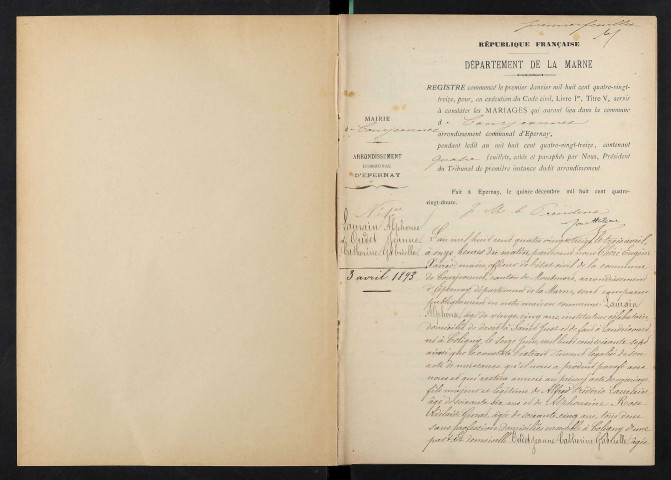 RÉPUBLIQUE FRANÇAISE
DÉPARTEMENT DE LA MARNE
REGISTRE commencé le premier Janvier mil huit cent quatre-vingt-
treize, pour, en exécution du Code civil, Livre Ier, Titre V, servir
à constater les MARIAGES qui auront lieu dans la commune
d
arrondissement communal d'Epernay,
pendant ledit an mil huit cent quatre-vingt-treize, contenant
quatre feuillets, cotés et paraphés par Nous, Président
du Tribunal de première instance dudit arrondissement
Fait à Epernay, le quinze décembre mil huit cent quatre-
vingt-douze.
MAIRIE
ARRONDISSEMENT
COMMUNAL
D'EPERNAY
N° 1er
Laurain Alphonse
et Oudet Jeanne
Catherine Gabrielle
3 avril 1893
L'an mil huit cent quatre vingt treize le trois avril,
à onze heures du matin, pardevant nous
maire, officier de l'état civil de la commune
de canton de Montmort, arrondissement
d'Epernay, département de la Marne, sont comparus
publiquement en notre maison commune Laurain
Alphonse, âgé de vingt cinq ans, instituteur
domicilié de droit à Saint Just et de fait à
né à Coligny le seize Juin mil huit cent soixante sept
ainsi que le constate l'extrait dûment légalisé de son
acte de naissance qu'il nous a produit
nous et qui restera annexé au présent acte de mariage
fils majeur et légitime de Alfred Frédéric Laurain
âgé de soixante dix ans et de Alphonsine Rose
âgée de soixante cinq ans, tous deux
sans profession domiciliés ensemble à Coligny d'une
part. Et demoiselle Oudet Jeanne Catherine Gabrielle âgée